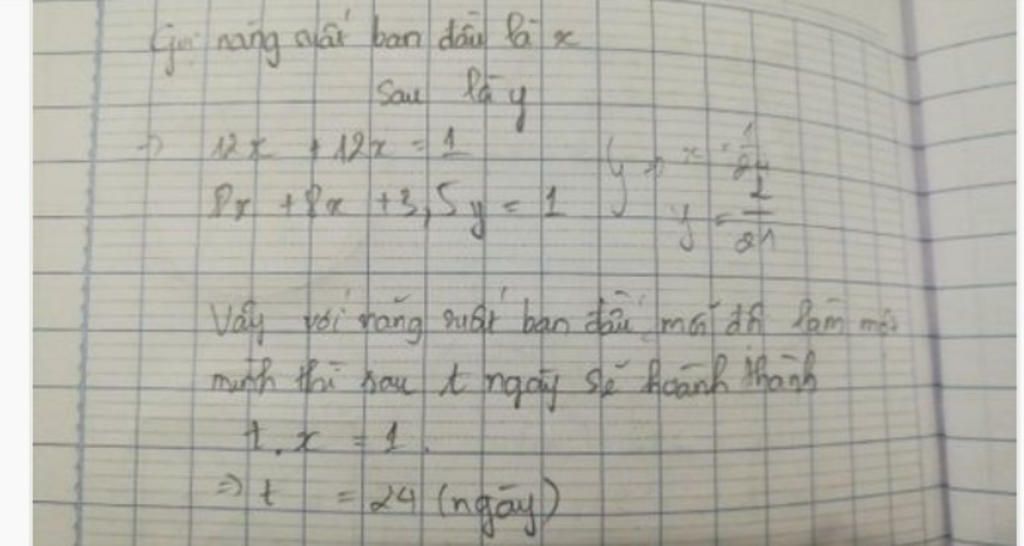 Gọi năng suất ban đầu là x
Sau là y
→ 12x + 12x = 1
8x + 8x + 3,5y = 1
} → x = 1/24
y = 2/21
Vậy với năng suất ban đầu, mỗi đội làm một
mình thì sau t ngày sẽ hoành thành
t.x = 1.
=> t = 24 (ngày)